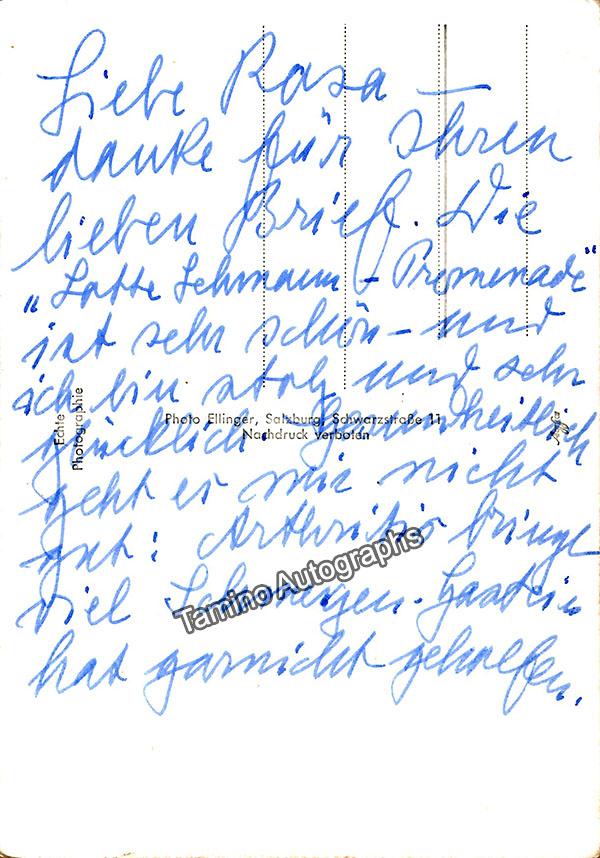 Liebe Rosa –
danke für Ihren
lieben Brief. Die
"Lotte Lehmann – Promenade"
ist sehr schön – und
ich bin stolz und sehr
glücklich. Gesundheitlich
geht es mir nicht
gut: Arthritis bringt
viel Schmerzen. Gastein
hat garnicht geholfen.
Echte
Photographie
Photo Ellinger, Salzburg, Schwarzstraße 11
Nachdruck verboten
Tamino Autographs